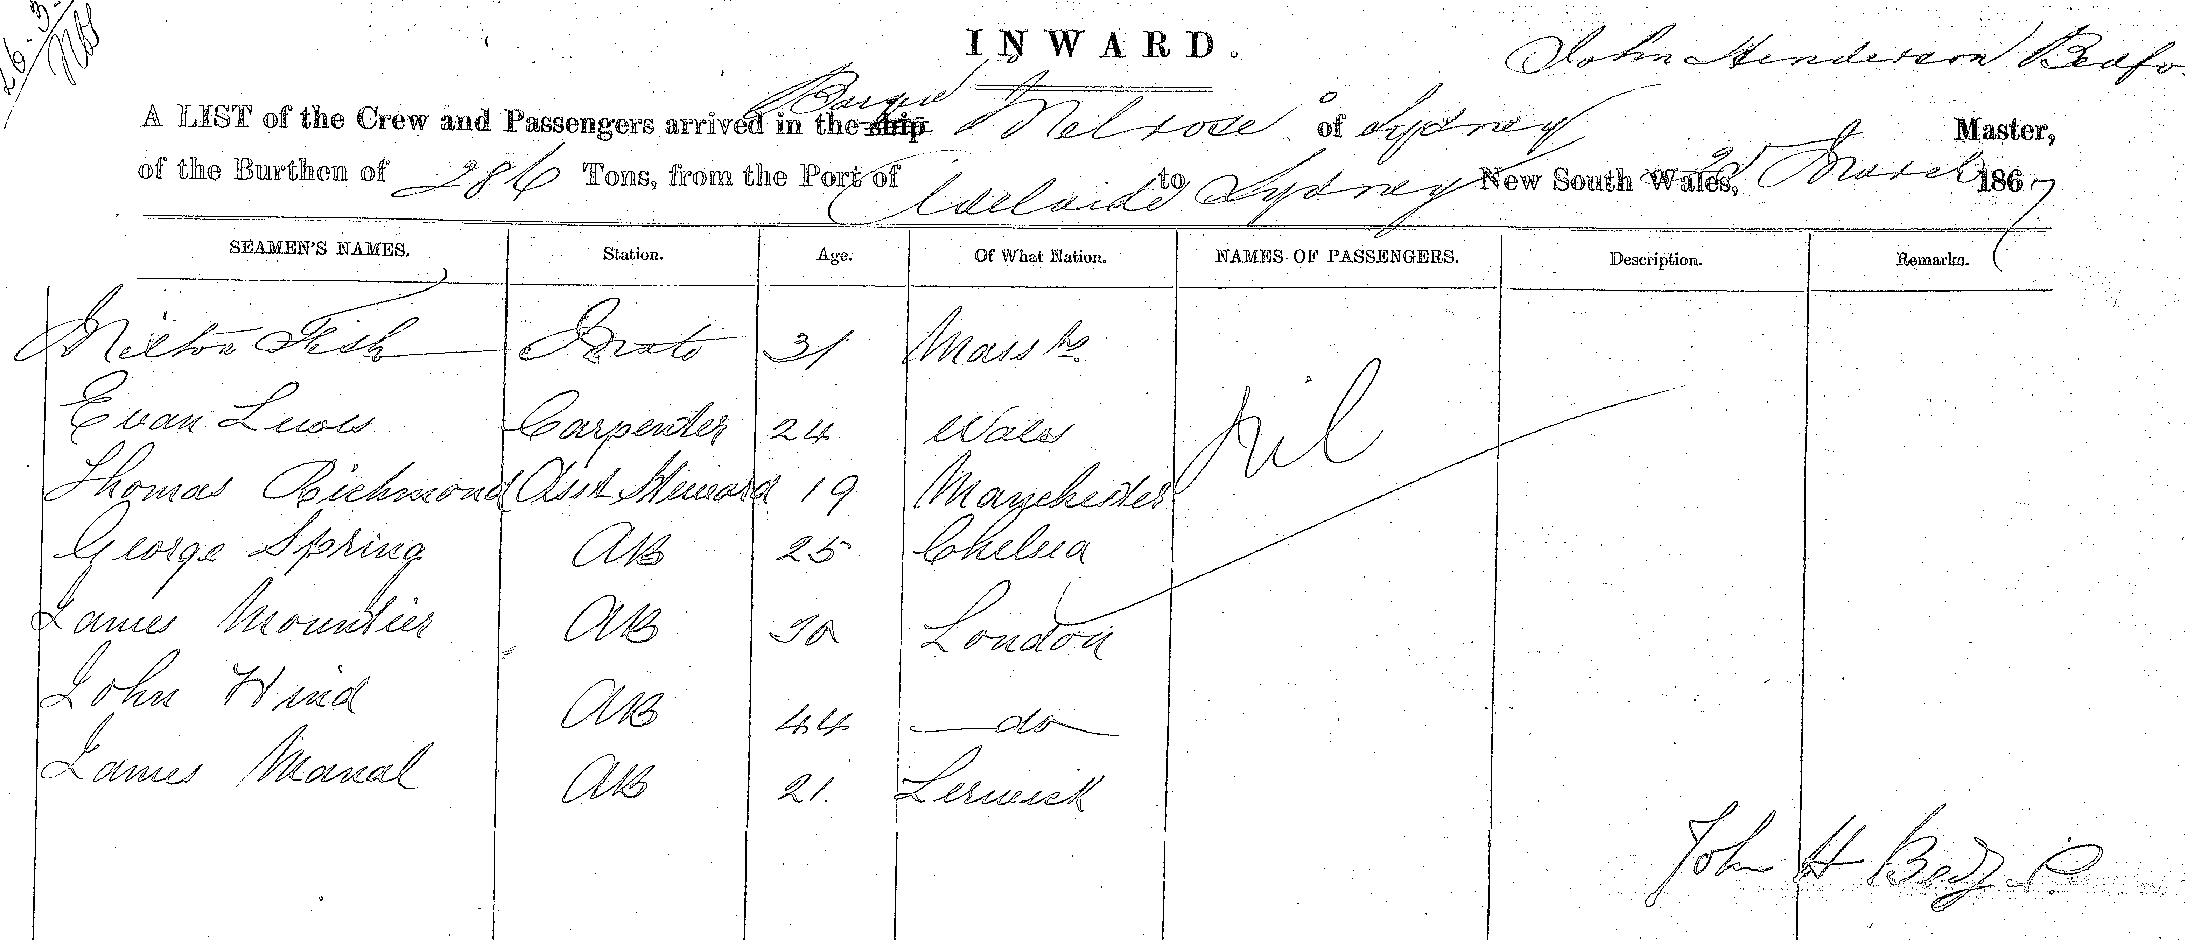 INWARD.
John Henderson Bedfo
A LIST of the Crew and Passengers arrived in the ship Barque Melrose of Sydney Master,
of the Burthen of 286 Tons, from the Port of Adelaide to Sydney New South Wales, March 1867
SEAMEN'S NAMES. Station. Age. Of What Nation. NAMES OF PASSENGERS. Description. Remarks.
Milton Fish Mate 31 Mass
Evan Lewis Carpenter 24 Wales nil
Thomas Richmond Asst Steward 19 Manchester
George Spring AB 25 Chelsea
James Mountier AB 30 London
John Hind AB 44 do
James Manal AB 21. Lerwick
John H